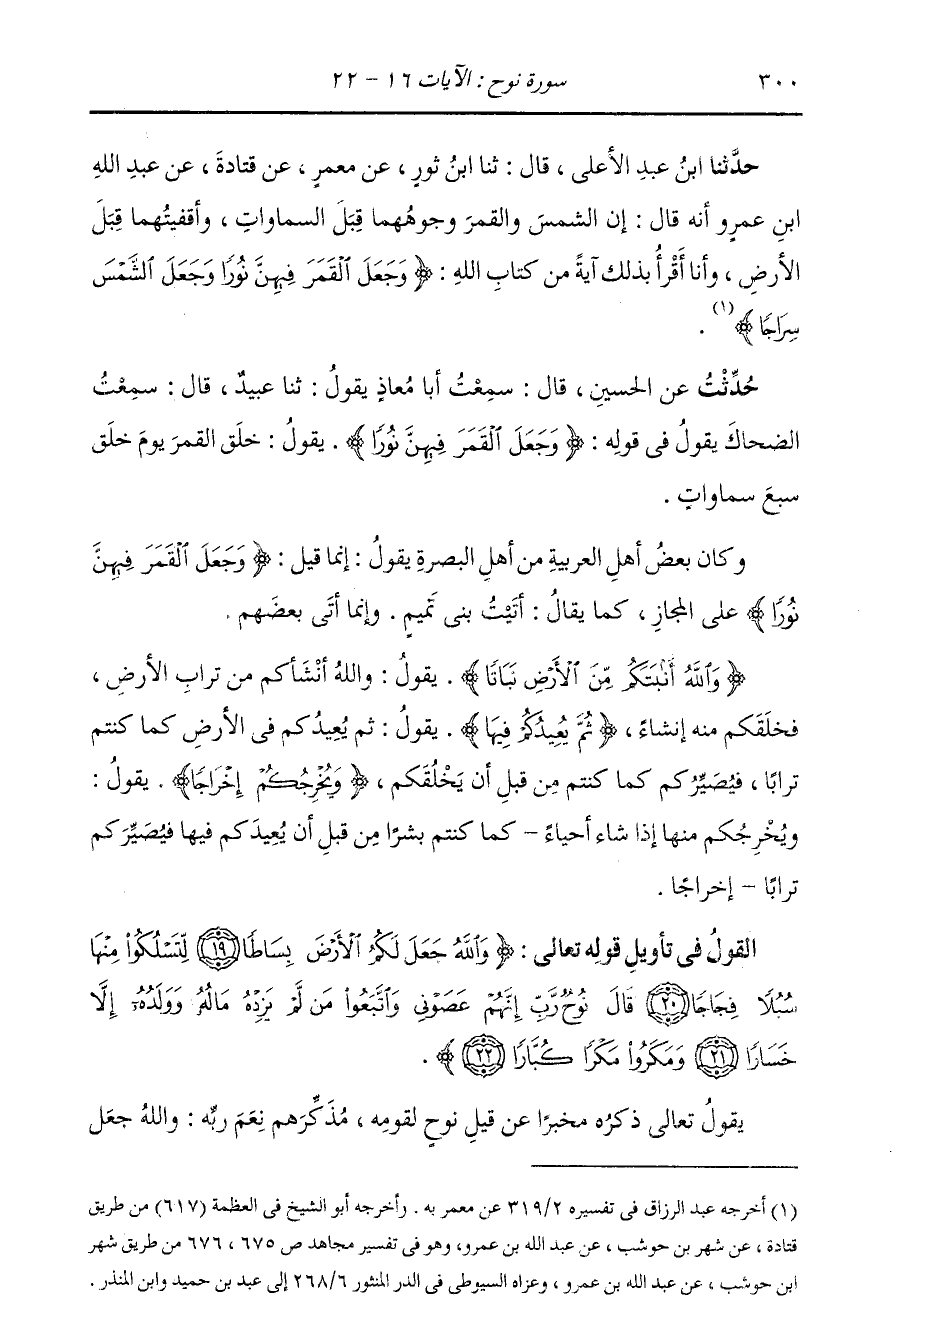 ٣٠٠ سورة نوح : الآيات ١٦ - ٢٢
حدَّثنا ابنُ عبدِ الأعلى ، قال : ثنا ابنُ ثورٍ ، عن معمرٍ ، عن قتادةَ ، عن عبدِ اللهِ
ابنِ عمرٍو أنه قال : إن الشمسَ والقمرَ وجوهُهما قِبَلَ السماواتِ ، وأقفيتُهما قِبَلَ
الأرضِ ، وأنا أَقْرأُ بذلك آيةً من كتابِ اللهِ : ﴿ وَجَعَلَ ٱلْقَمَرَ فِيهِنَّ نُورًا وَجَعَلَ ٱلشَّمْسَ
سِرَاجًا ﴾(١) .
حُدِّثْتُ عن الحسينِ ، قال : سمِعْتُ أبا مُعاذٍ يقولُ : ثنا عبيدٌ ، قال : سمِعْتُ
الضحاكَ يقولُ فى قولِه : ﴿ وَجَعَلَ ٱلْقَمَرَ فِيهِنَّ نُورًا ﴾ . يقولُ : خلَق القمرَ يومَ خلَق
سبعَ سماواتٍ .
وكان بعضُ أهلِ العربيةِ من أهلِ البصرةِ يقولُ : إنما قيل : ﴿ وَجَعَلَ ٱلْقَمَرَ فِيهِنَّ
نُورًا ﴾ على المجازِ ، كما يقالُ : أتَيْتُ بنى تَميمٍ . وإنما أتَى بعضَهم .
﴿ وَٱللَّهُ أَنۢبَتَكُم مِّنَ ٱلْأَرْضِ نَبَاتًا ﴾ . يقولُ : واللهُ أنْشَأكم من ترابِ الأرضِ ،
فخلَقَكم منه إنشاءً ، ﴿ ثُمَّ يُعِيدُكُمْ فِيهَا ﴾ . يقولُ : ثم يُعِيدُكم فى الأرضِ كما كنتم
ترابًا ، فيُصَيِّرُكم كما كنتم مِن قبلِ أن يَخْلُقَكم ، ﴿ وَيُخْرِجُكُمْ إِخْرَاجًا ﴾ . يقولُ :
ويُخْرِجُكم منها إذا شاء أحياءً - كما كنتم بشرًا مِن قبلِ أن يُعِيدَكم فيها فيُصَيِّرَكم
ترابًا - إخراجًا .
القولُ فى تأويلِ قولِه تعالى : ﴿ وَٱللَّهُ جَعَلَ لَكُمُ ٱلْأَرْضَ بِسَاطًا ﴿١٩﴾ لِّتَسْلُكُوا۟ مِنْهَا
سُبُلًا فِجَاجًا ﴿٢٠﴾ قَالَ نُوحٌ رَّبِّ إِنَّهُمْ عَصَوْنِى وَٱتَّبَعُوا۟ مَن لَّمْ يَزِدْهُ مَالُهُۥ وَوَلَدُهُۥٓ إِلَّا
خَسَارًا ﴿٢١﴾ وَمَكَرُوا۟ مَكْرًا كُبَّارًا ﴿٢٢﴾ ﴾ .
يقولُ تعالى ذكرُه مخبرًا عن قيلِ نوحٍ لقومِه ، مُذَكِّرَهم نِعَمَ ربِّه : واللهُ جعَل
(١) أخرجه عبد الرزاق فى تفسيره ٣١٩/٢ عن معمر به . رأخرجه أبو الشيخ فى العظمة (٦١٧) من طريق
قتادة ، عن شهر بن حوشب ، عن عبد الله بن عمرو، وهو فى تفسير مجاهد ص ٦٧٥ ، ٦٧٦ من طريق شهر
ابن حوشب ، عن عبد الله بن عمرو ، وعزاه السيوطى فى الدر المنثور ٢٦٨/٦ إلى عبد بن حميد وابن المنذر .